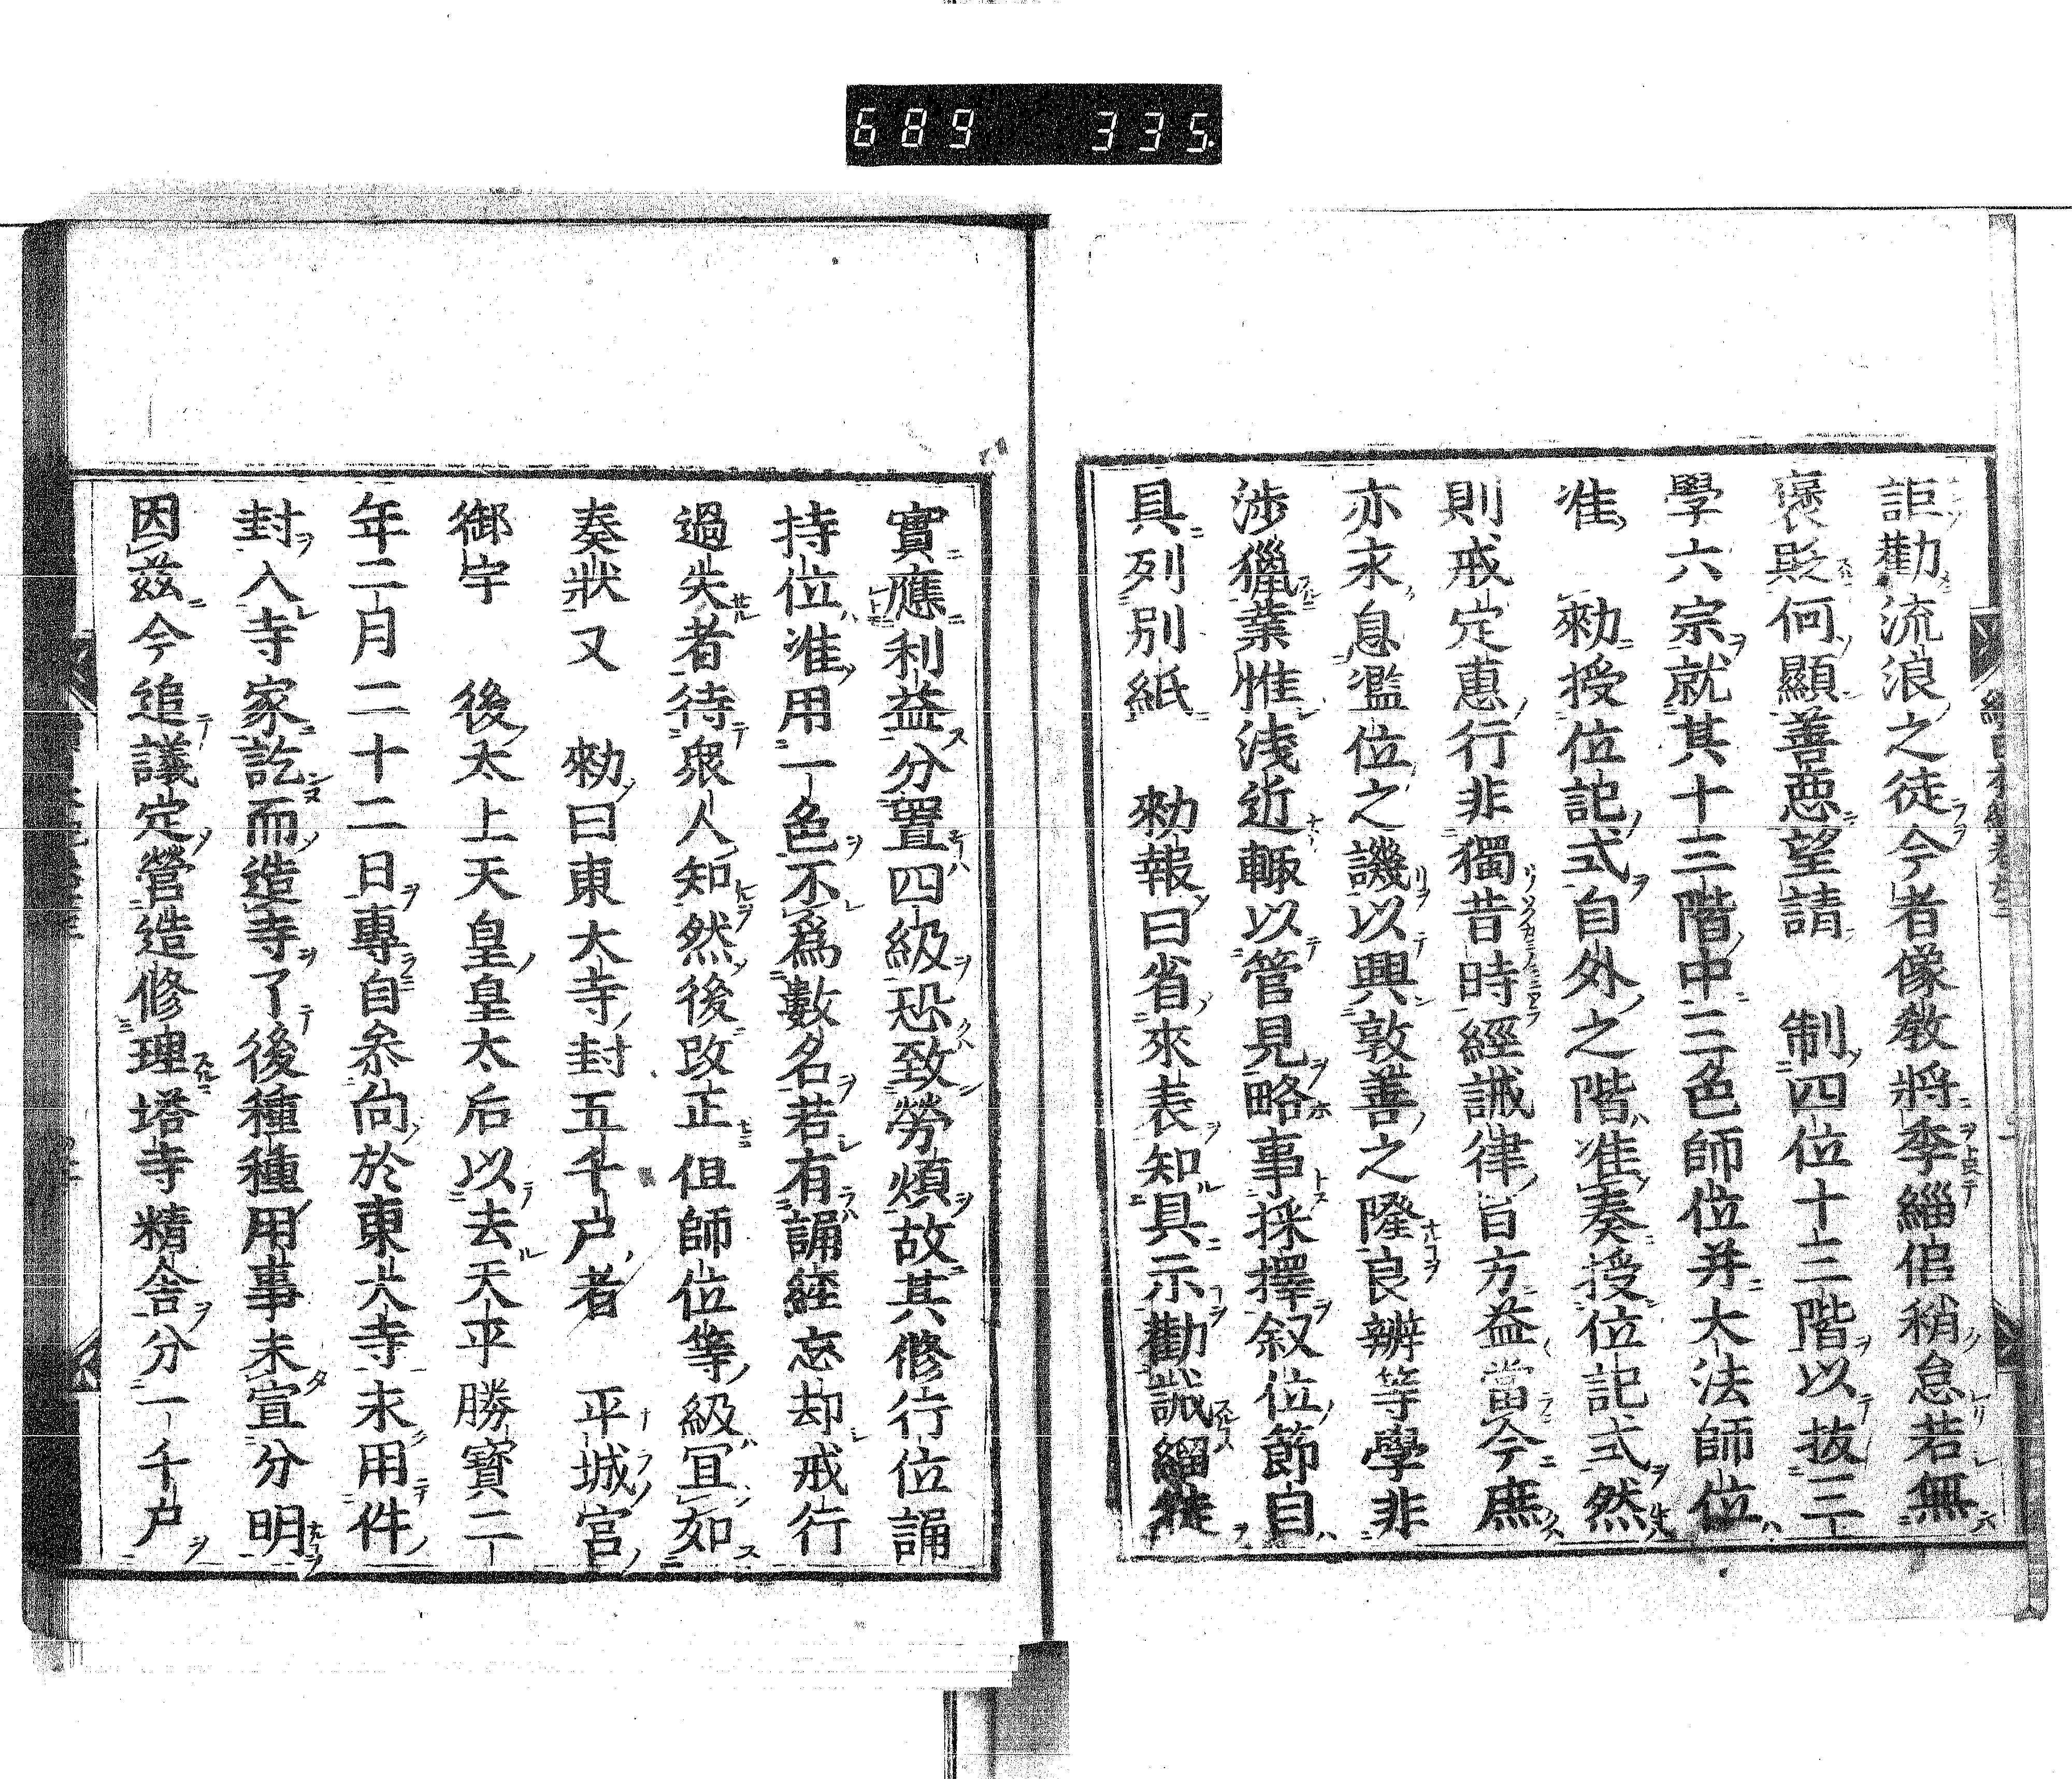 689 335
詎勸流浪之徒今者像教將季緇侶稍怠若無
褒貶何顯善惡望請 制四位十三階以拔三
學六宗就其十三階中三色師位并大法師位
准 勅授位記式自外之階准奏授位記式然
則戒定惠行非獨昔時經誡律旨方益當今庶
亦永息濫位之譏以興敦善之隆良辨等學非
涉獵業惟淺近輙以管見略事採擇叙位節目
具列別紙 勅報曰省來表知具示勸誡緇徒
實應利益分置四級恐致勞煩故其修行位誦
持位准用一色不爲數名若有誦經忘却戒行
過失者待衆人知然後改正但師位等級宜如
奏狀又 勅曰東大寺封五千戸者 平城宮
御宇 後太上天皇皇太后以去天平勝寶二
年二月二十二日專自參向於東大寺永用件
封入寺家訖而造寺了後種種用事未宣分明
因茲今追議定營造修理塔寺精舎分一千戸